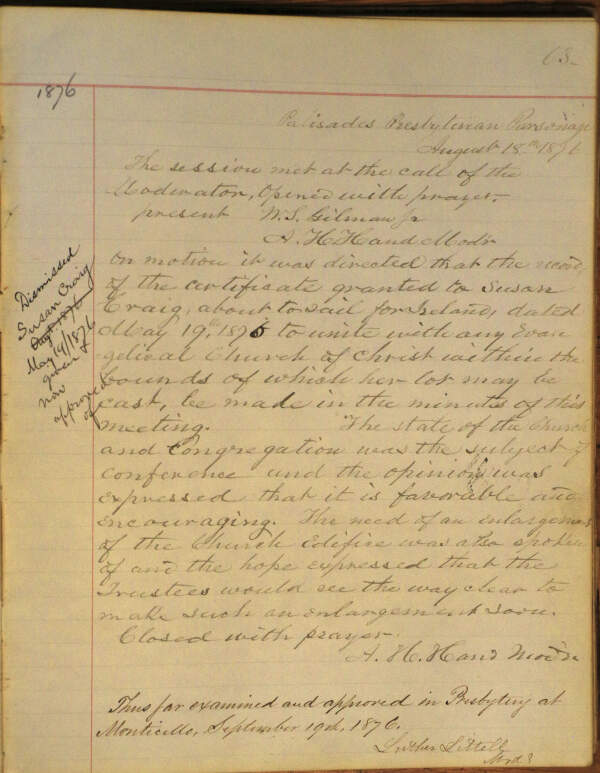 63
1876
Palisades Presbyterian Parsonage
August 18th 1876
The session met at the call of the
Moderator, Opened with prayer.
present W. S. Gilman Jr
A. H. Hand Modr
On motion it was directed that the record
of the certificate granted to Susan
Craig, about to sail for Ireland, dated
May 19th 1876 to unite with any Evan
gelical Church of Christ within the
bounds of which her lot may be
cast, be made in the minutes of this
meeting. The state of the Church
and congregation was the subject of
conference and the opinion was
expressed that it is favorable and
encouraging. The need of an enlargement
of the Church Edifice was also spoken
of and the hope expressed that the
Trustees would see the way clear to
make such an enlargement soon.
Closed with prayer.
A. H. Hand Modr.
Dismissed
Susan Craig
Augt 1876
May 19/1876
given &
now
approved
of
Thus far examined and approved in Presbytery at
Monticello, September 19th, 1876.
Luther Littell
Mod.